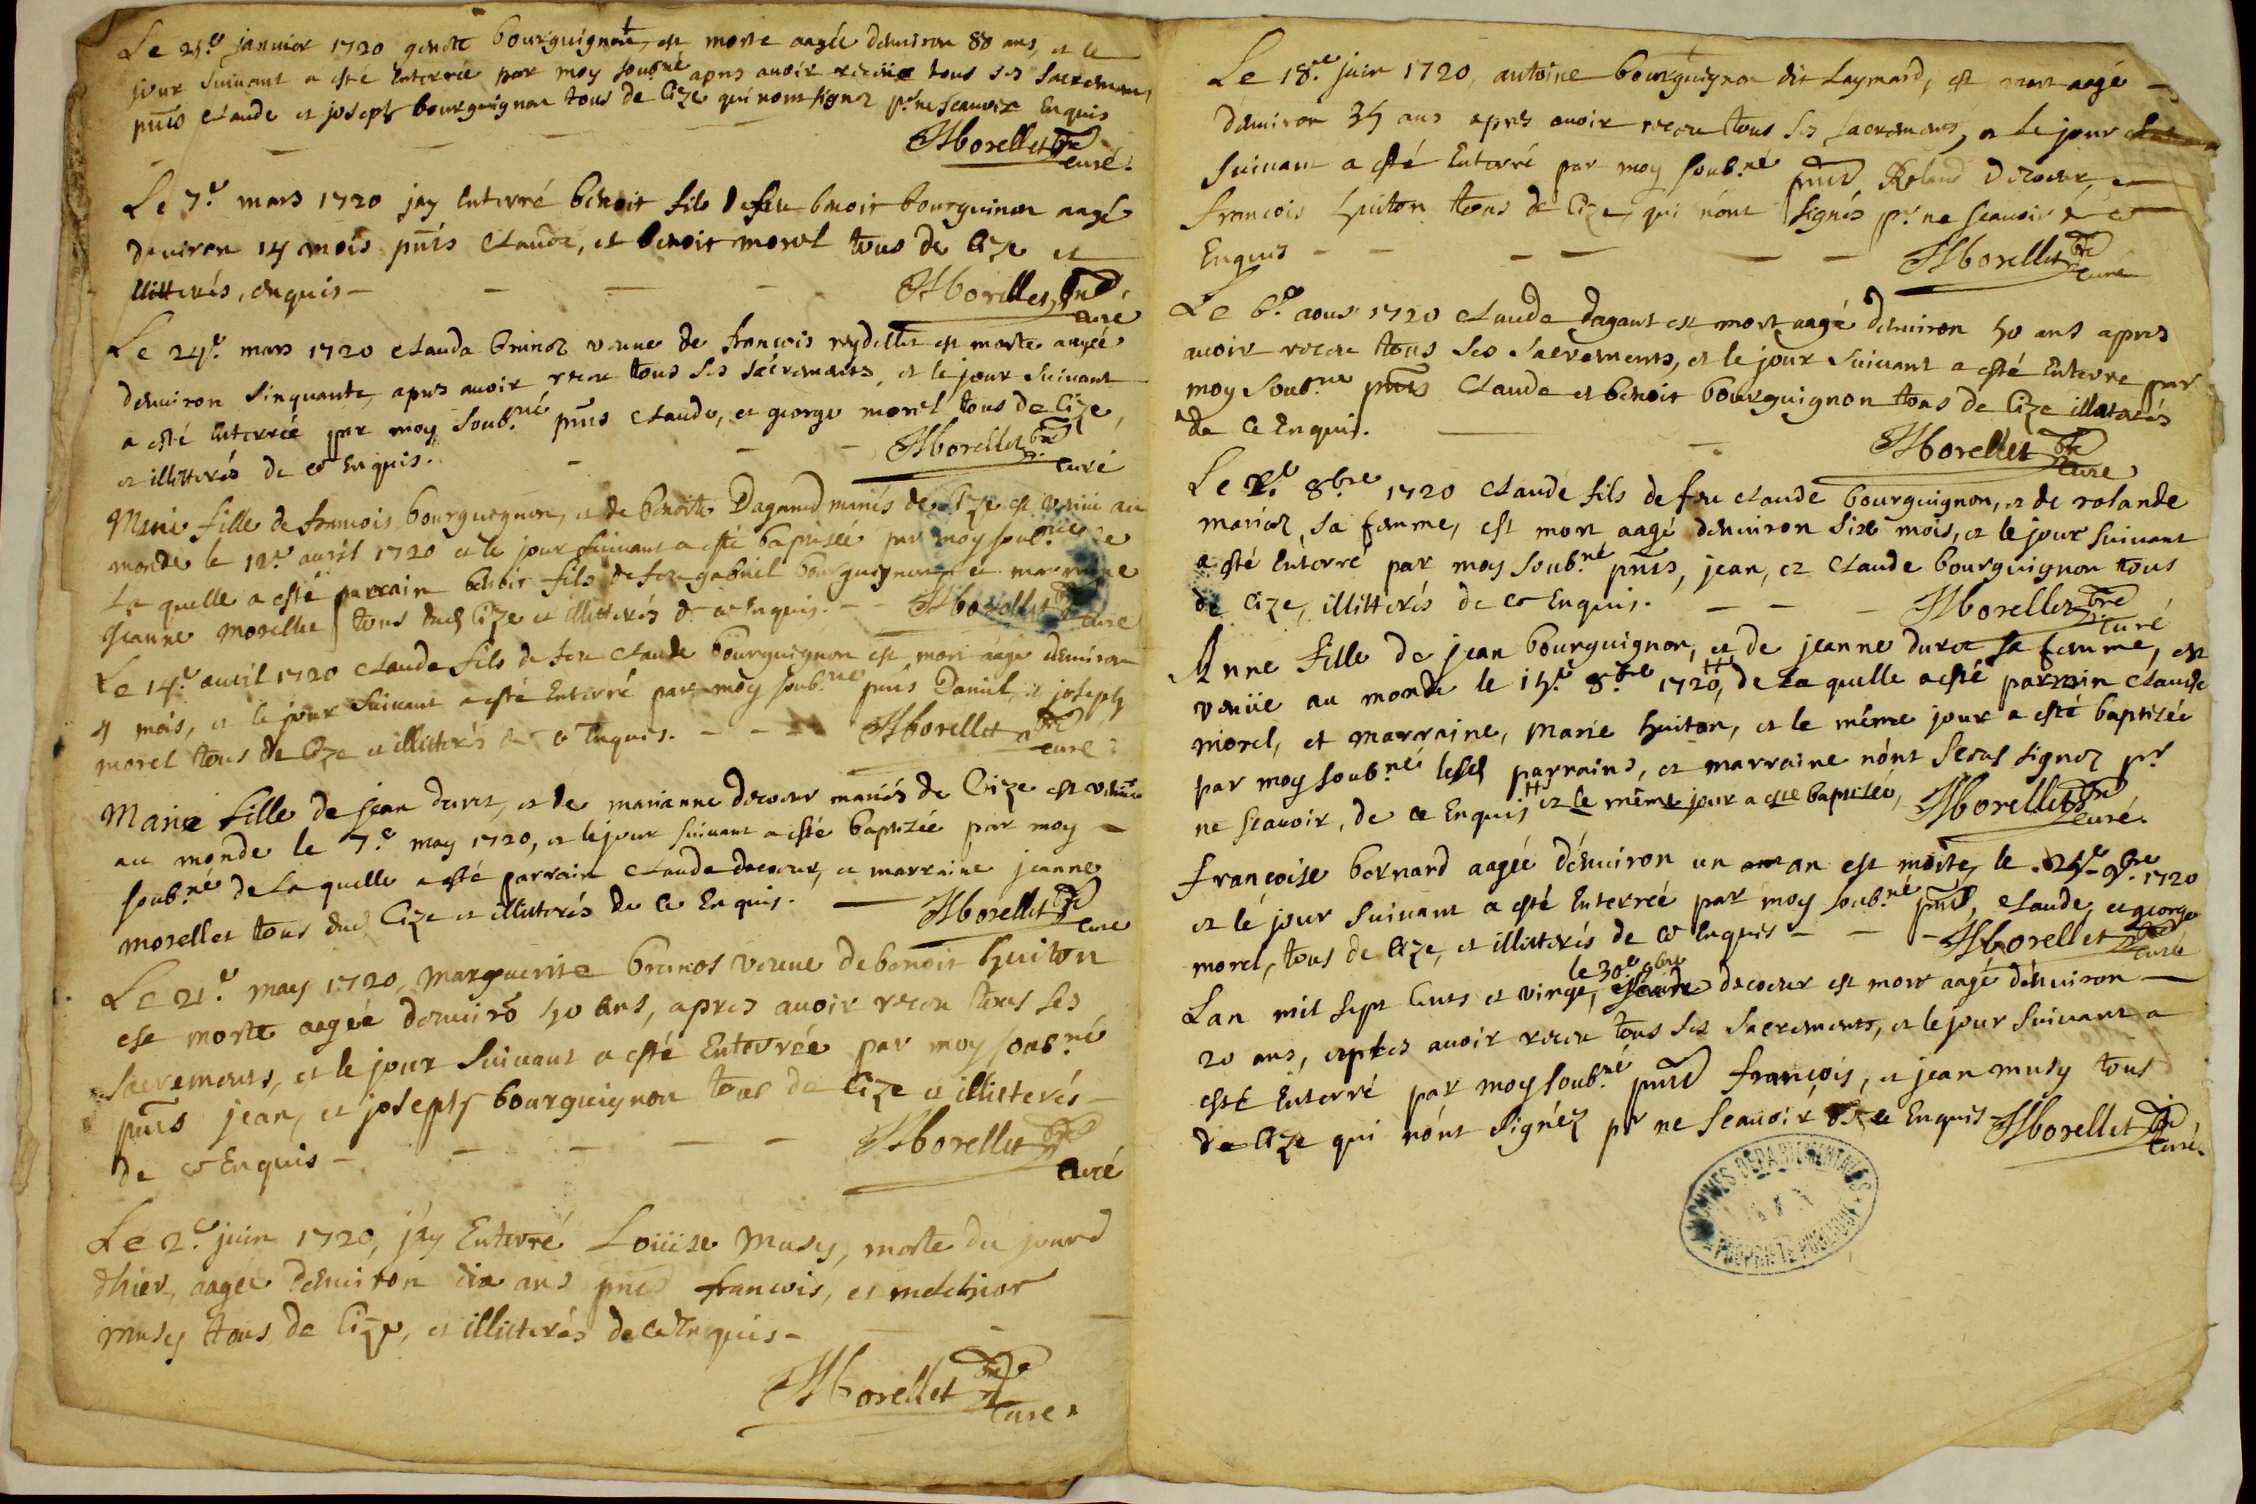 Le 25.e janvier 1720 benoite bourguignon, est morte aagée denviron 80 ans, et le
jour suivant a esté enterrée par moy soubné apres avoir receüe tous ses sacremens,
pnts Claude et joseph bourguignon tous de Cize qui nont signez pr ne scavoir Enquis
Morellet pbre curé.
Le 7.e mars 1720 jay enterré benoit fils de feu benoit bourguinon aagé
denviron 14 mois pnts Claude, et benoit morel tous de Cize et
illitterés, enquis -
Morellet pbre curé
Le 24.e mars 1720 Clauda brunos veuue de francois reydellet est morte aagée
denviron sinquante, apres avoir receu tous ses sacremants, et le jour suivant
a esté enterrée par moy soub.né pnts Claude, et george morel tous de Cize,
et illitterés de ce Enquis.
Morellet pbre curé
Marie fille de francois bourguignon, et de benoite Dagand mariés de Cize est venüe au
monde le 12.e avril 1720 et le jour suivant a esté baptisée par moy soub.né de
La quelle a esté parrain benoit fils de feu gabriel bourguignon et marraine
jeanne Morellet tous dud Cize et illitterés de ce Enquis. - - Morellet pbre curé
Le 14.e avril 1720 Claude fils de feu Claude bourguignon est mort aagé denviron
4 mois, et le jour suivant a esté Enterré par moy soub.né pnts Daniel, et joseph
morel tous de Cize et illitterés de ce Enquis. - - - Morellet pbre curé
Marie fille de jean duret, et de marianne decoeur mariés de Cize est venüe
au monde le 7.e may 1720, et le jour suivant a esté baptizée par moy
soub.né de La quelle a esté parrain Claude decoeur, et marraine jeanne
morellet tous dud Cize et illitterés de ce Enquis. - Morellet pbre curé
Le 21.e may 1720, Marguerite brunos veuue de benoit huiton
est morte aagée denvirõ 50 ans, apres avoir receu tous ses
sacremens, et le jour suivant a esté Enterrée par moy soub.né
pnts jean, et joseph bourguignon tous de Cize et illitterés
de ce Enquis -
Morellet pbre curé
Le 2.e juin 1720, jáy Enterré Loüise Musy, morte du jourd
dhier, aagée denviron dix ans pnts francois, et melchior
musy tous de Cize, et illitterés de ce Enquis -
Morellet pbre curé
Le 18.e juin 1720, antoine bourguignon dit Laymard, est mort aagé
denviron 35 ans apres avoir receu tous ses sacremens, et le jour
suivant a esté Enterré par moy soub.né pnts Roland Decoeur, et
francois huiton tous de Cize, qui nónt signés pr ne scavoir de ce
Enquis
Morellet pbre curé
Le 6.e aoust 1720 Claude dagant est mort aagé denviron 50 ans apres
avoir receu tous ses sacremens, et le jour suivant a esté Enterré par
moy soub.né pnts Claude et benoit bourguignon tous de Cize illiterés
de ce Enquis.
Morellet pbre curé
Le 2.e 8bre 1720 Claude fils de feu Claude bourguignon, et de rolande
marion, sa femme, est mort aagé denviron six mois, et le jour suivant
a esté Enterré par moy soub.né pnts, jean, et Claude bourguignon tous
de Cize, illitterés de ce Enquis. Morellet pbre curé
Anne fille de jean bourguignon, et de jeanne duroc sa femme, est
venüe au monde le 15.e 8bre 1720, de La quelle a esté parrain Claude
morel, et marraine, marie huiton, et le même jour a esté baptisée
par moy soub.né lesd parrains, et marraine nónt sceus signez pr
ne scavoir, de ce Enquis et le même jour a esté baptisée, Morellet pbre curé.
françoise bernard aagée dénviron un an est morte, le 24.e 9bre 1720
et le jour suivant a esté Enterrée par moy soub.né pnts, Claude, et george
morel, tous de Cize, et illitterés de ce Enquis - - - Morellet pbre curé
Lan mil sept Cents et vingt, le 30.e 9bre Claude decoeur est mort aagé dénviron
20 ans, aprés avoir receu tous ses sacremens, et le jour suivant a
esté Enterré par moy soub.né pnts françois, et jean musy tous
de Cize qui nónt signéz pr ne scavoir de ce Enquis Morellet pbre curé.
ARCHIVES DEPARTEMENTALES
PROPRIETE PUBLIQUE